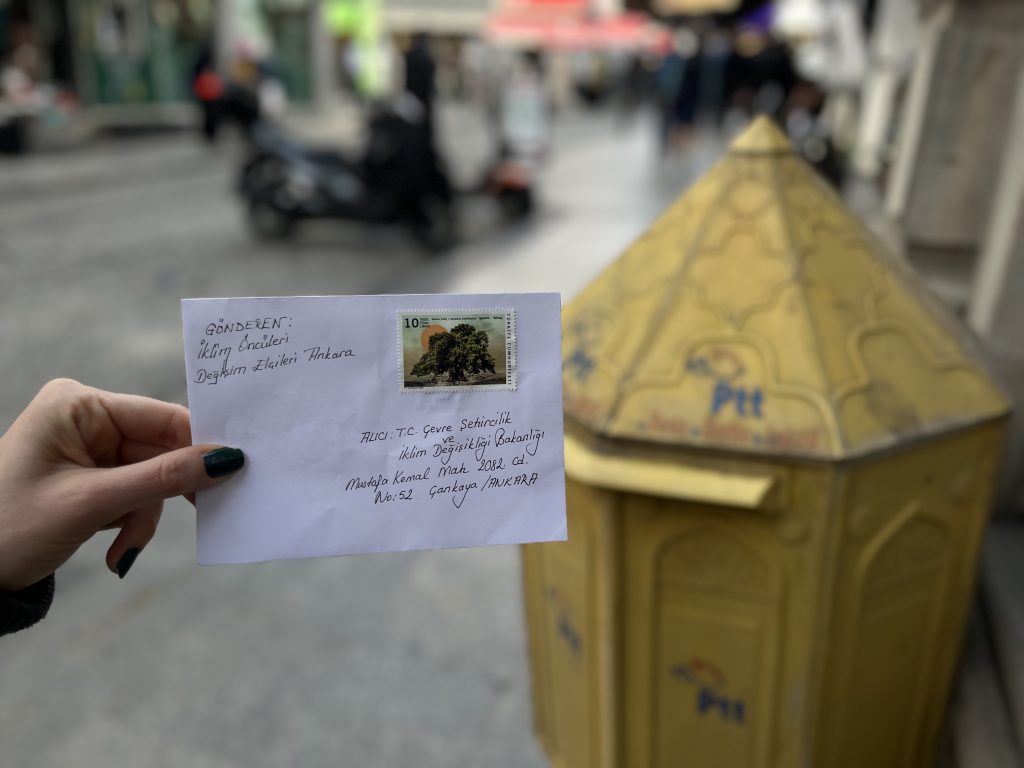 GÖNDEREN:
İklim Öncüleri
Değişim Elçileri Ankara
10
TÜRKİYE CUMHURİYETİ
ALICI: T.C. Çevre Şehircilik
ve
İklim Değişikliği Bakanlığı
Mustafa Kemal Mah. 2082 Cd.
No: 52 Çankaya/ANKARA
Ptt
Ptt